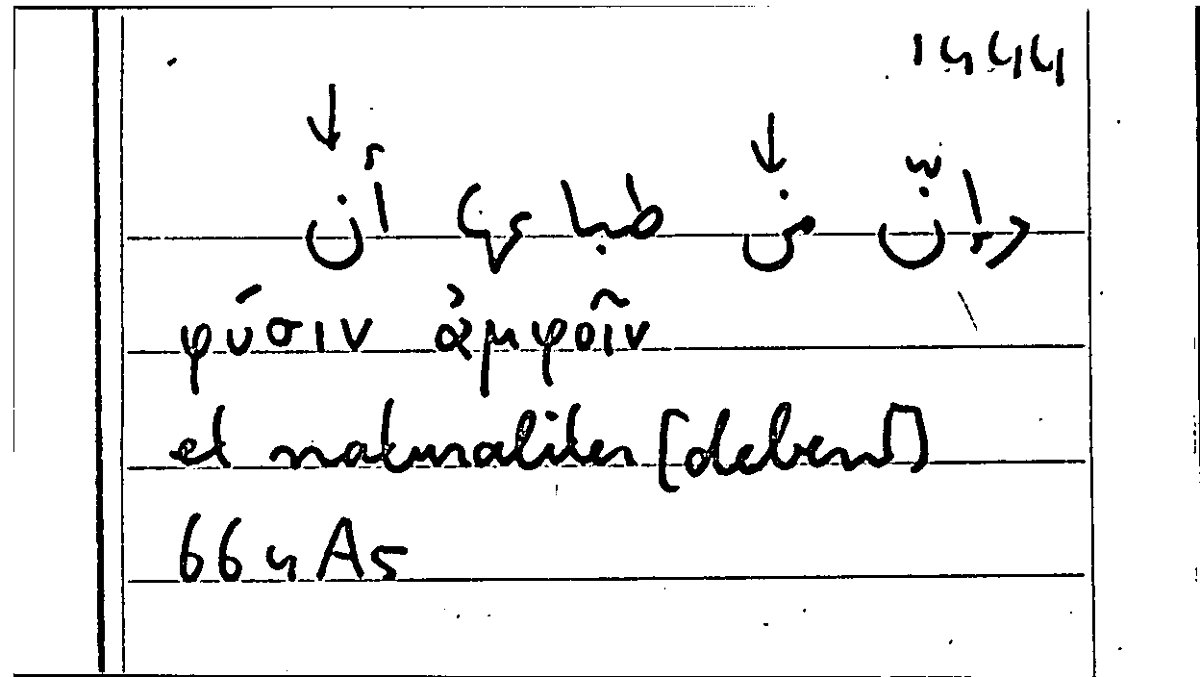 1444
↓ ↓
وإنّ من طباعها أن
φύσιν ἀμφοῖν
et naturaliter [debent]
664A5